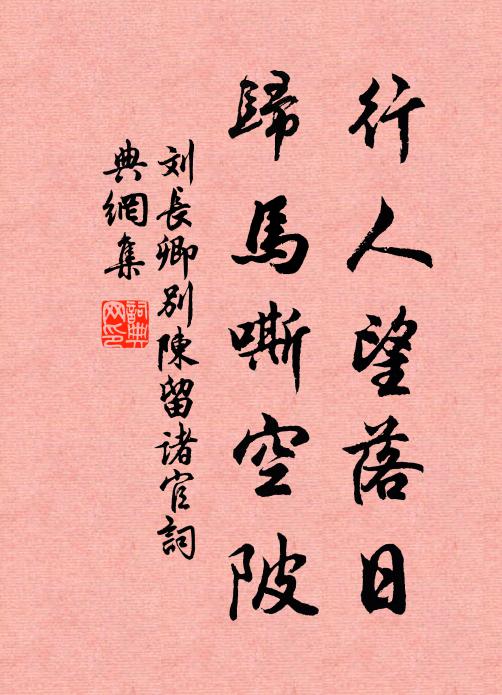 行人望落日
歸馬嘶空陂
刘長卿別陳留诸官詞
典網集
詞典
网印